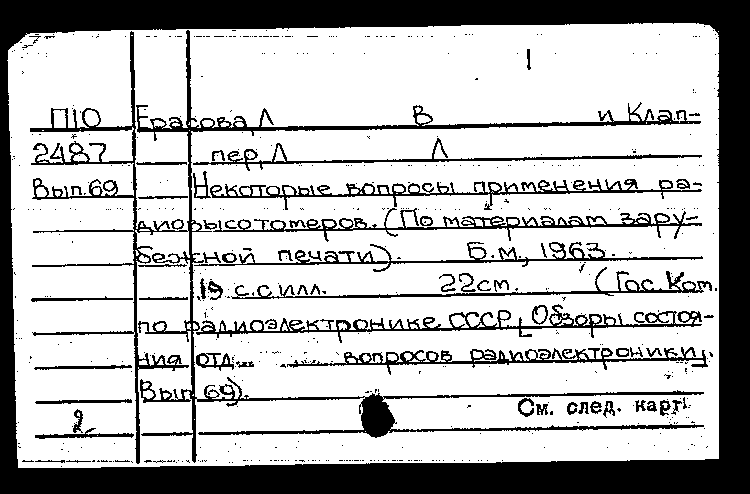 1
П10 Ерасова, Л В и Клап-
2487 пер, Л Л
Вып. 69 Некоторые вопросы применения ра-
диовысотомеров. (По материалам зару-
бежной печати). Б.м., 1963.
19 с.с илл. 22см. (Гос. Ком.
по радиоэлектронике СССР. Обзоры состоя-
ния отд. вопросов радиоэлектроники.
Вып 69).
2 См. след. карт